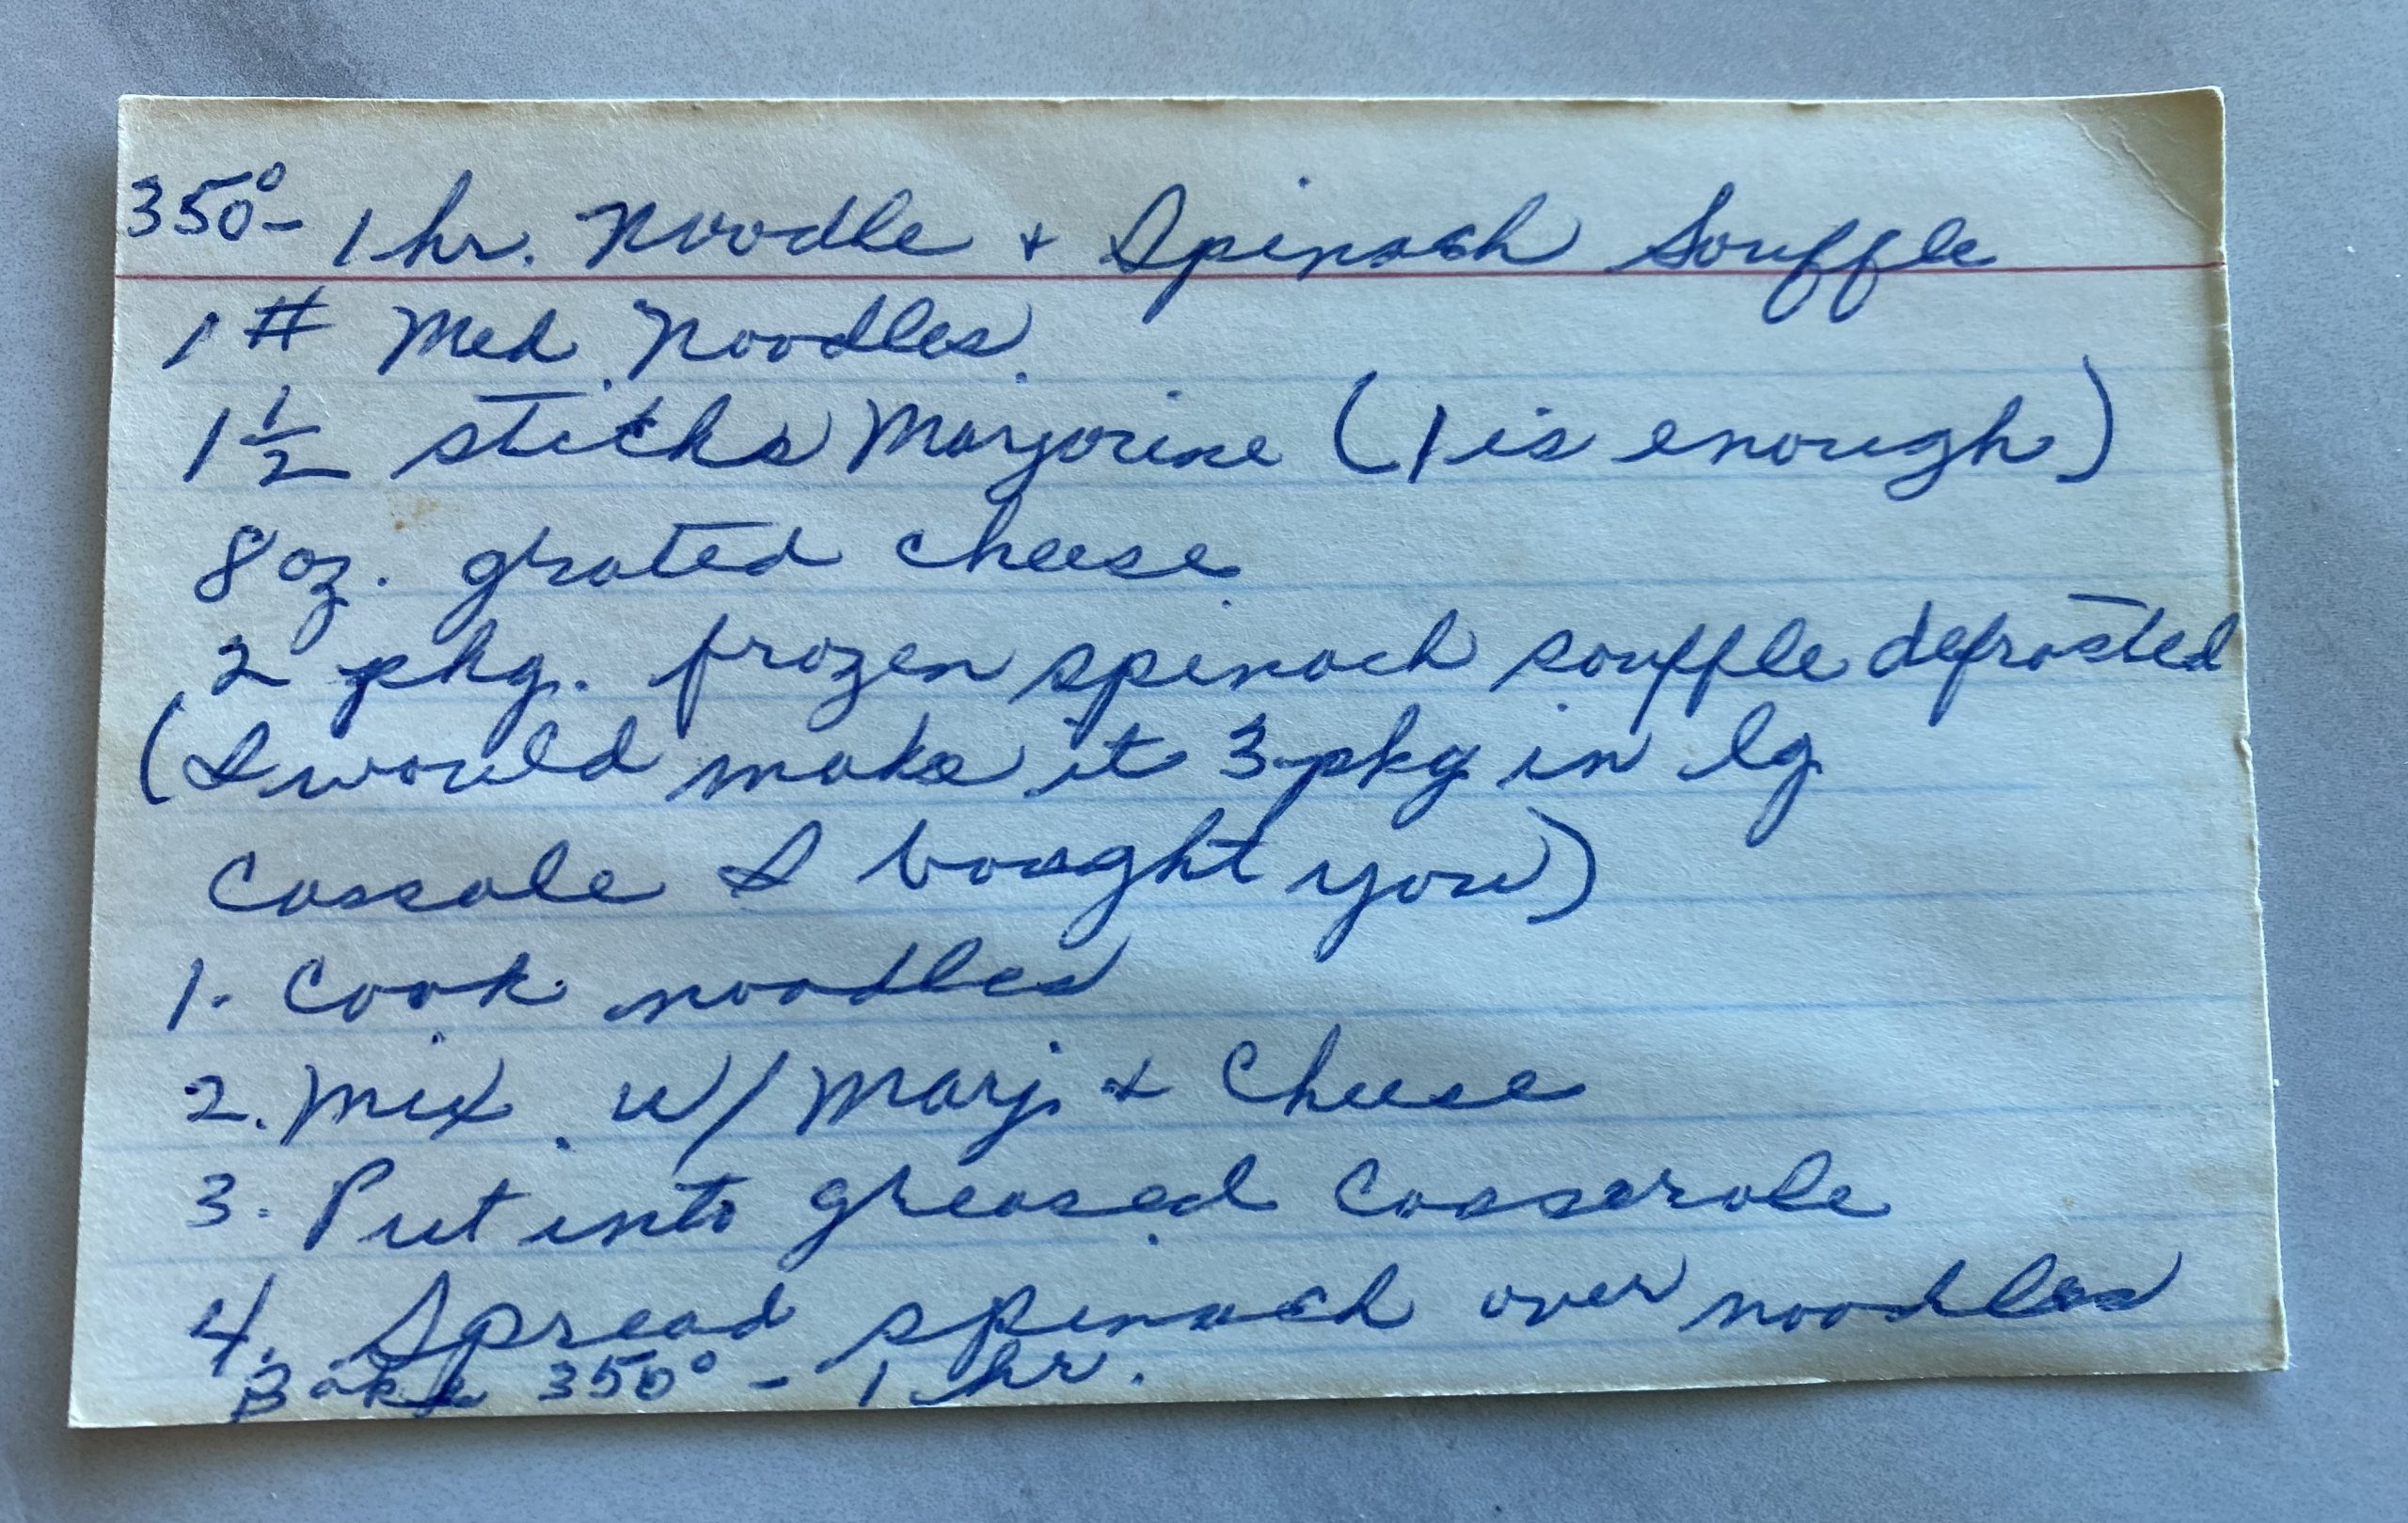 350°- 1 hr. Noodle + Spinach Souffle
1 # Med. Noodles
1 1/2 sticks Marjorine (1 is enough)
8 oz. grated cheese
2 pkg. frozen spinach souffle defrosted
(I would make it 3 pkg in lg
Cassole I bought you)
1. Cook noodles
2. Mix w/ Marj. + Cheese
3. Put into greased casserole
4. Spread spinach over noodles
Bake 350° - 1 hr.